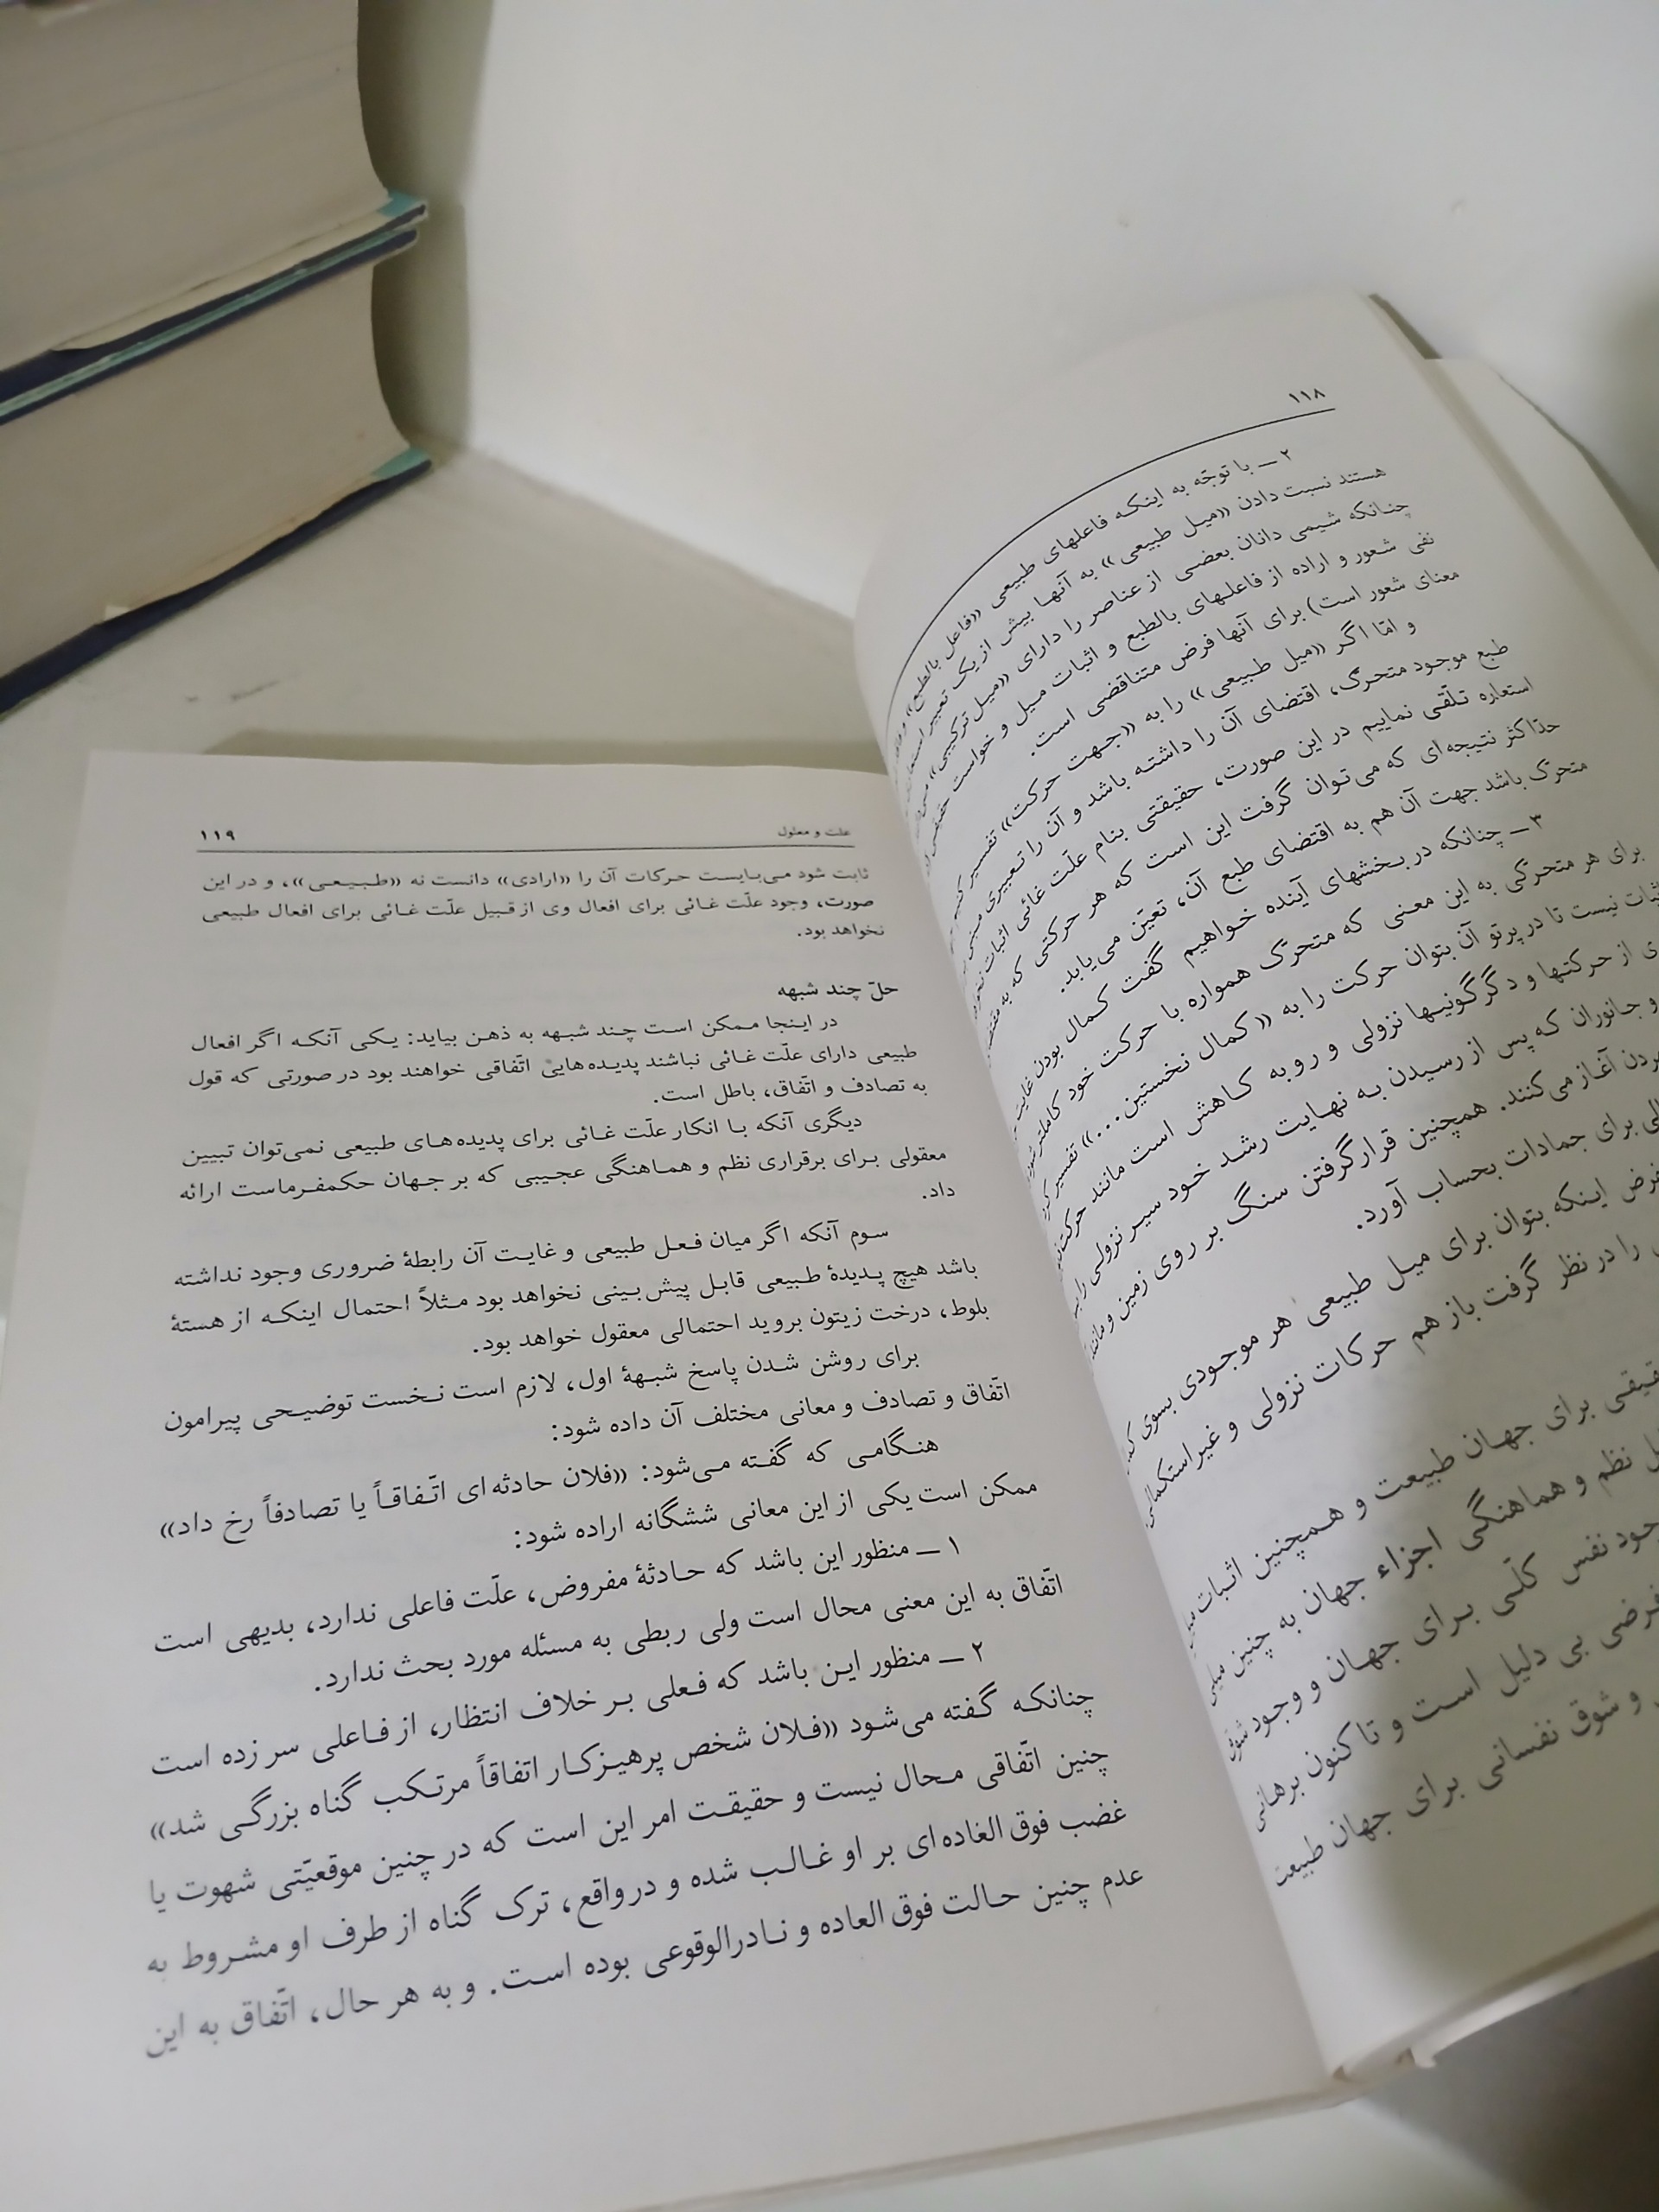 ۱۱۸
۲ ــ با توجّه به اینکه فاعلهای طبیعی «فاعل بالطبع» و
هستند نسبت دادن «میل طبیعی» به آنها بیش از یک تعبیر
چنانکه شیمی دانان بعضی از عناصر را دارای «میل ترکیبی»
نفی شعور و اراده از فاعلهای بالطبع و اثبات میل و خواست
معنای شعور است) برای آنها فرض متناقضی است.
و امّا اگر «میل طبیعی» را به «جهت حرکت» تفسیر
طبع موجود متحرّک، اقتضای آن را داشته باشد و آن را تعبیری
استعاره تلّقی نماییم در این صورت، حقیقتی بنام علّت غائی اثبات
حدّاکثر نتیجه‌ای که می‌توان گرفت این است که هر حرکتی که
متحرّک باشد جهت آن هم به اقتضای طبع آن، تعیّن می‌یابد.
۳ ــ چنانکه در بخشهای آینده خواهیم گفت کمال بودن غایت
برای هر متحرّکی به این معنی که متحرّک همواره با حرکت خود کاملتر
نیست تا در پرتو آن بتوان حرکت را به «کمال نخستین...» تفسیر
از حرکتها و دگرگونیها نزولی و رو به کاهش است مانند
و جانوران که پس از رسیدن به نهایت رشد خود سیر نزولی را
آغاز می‌کنند. همچنین قرار گرفتن سنگ بر روی زمین و
برای جمادات بحساب آورد.
اینکه بتوان برای میل طبیعی هر موجودی بسوی
را در نظر گرفت باز هم حرکات نزولی و غیر استکمالی
برای جهان طبیعت و همچنین اثبات
نظم و هماهنگی اجزاء جهان به چنین
نفس کلّی برای جهان و وجود
بی دلیل است و تا کنون برهانی
و شوق نفسانی برای جهان طبیعت
علت و معلول
۱۱۹
ثابت شود می‌بایست حرکات آن را «ارادی» دانست نه «طبیعی»، و در این
صورت، وجود علّت غائی برای افعال وی از قبیل علّت غائی برای افعال طبیعی
نخواهد بود.
حلّ چند شبهه
در اینجا ممکن است چند شبهه به ذهن بیاید: یکی آنکه اگر افعال
طبیعی دارای علّت غائی نباشند پدیده‌هایی اتّفاقی خواهند بود در صورتی که قول
به تصادف و اتّفاق، باطل است.
دیگری آنکه با انکار علّت غائی برای پدیده‌های طبیعی نمی‌توان تبیین
معقولی برای برقراری نظم و هماهنگی عجیبی که بر جهان حکمفرماست ارائه
داد.
سوم آنکه اگر میان فعل طبیعی و غایت آن رابطهٔ ضروری وجود نداشته
باشد هیچ پدیدهٔ طبیعی قابل پیش‌بینی نخواهد بود مثلاً احتمال اینکه از هستهٔ
بلوط، درخت زیتون بروید احتمالی معقول خواهد بود.
برای روشن شدن پاسخ شبههٔ اول، لازم است نخست توضیحی پیرامون
اتّفاق و تصادف و معانی مختلف آن داده شود:
هنگامی که گفته می‌شود: «فلان حادثه‌ای اتّفاقاً یا تصادفاً رخ داد»
ممکن است یکی از این معانی ششگانه اراده شود:
۱ ــ منظور این باشد که حادثهٔ مفروض، علّت فاعلی ندارد، بدیهی است
اتّفاق به این معنی محال است ولی ربطی به مسئله مورد بحث ندارد.
۲ ــ منظور این باشد که فعلی بر خلاف انتظار، از فاعلی سر زده است
چنانکه گفته می‌شود «فلان شخص پرهیزکار اتفاقاً مرتکب گناه بزرگی شد»
چنین اتّفاقی محال نیست و حقیقت امر این است که در چنین موقعیّتی شهوت یا
غضب فوق الغاده‌ای بر او غالب شده و در واقع، ترک گناه از طرف او مشروط به
عدم چنین حالت فوق العاده و نادرالوقوعی بوده است. و به هر حال، اتّفاق به این